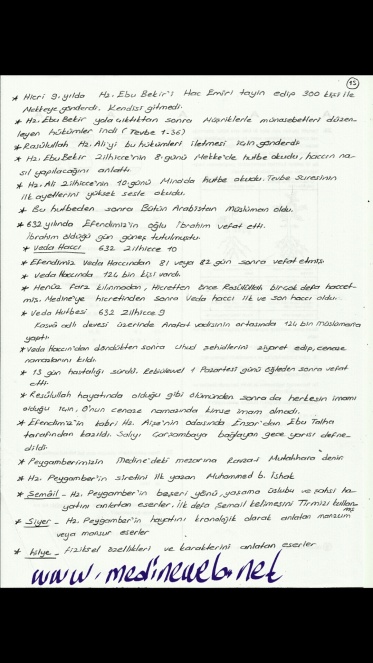 15
* Hicri 9. yılda Hz. Ebu Bekir'i Hac Emiri tayin edip 300 kişi ile
Mekkeye gönderdi. Kendisi gitmedi.
* Hz. Ebu Bekir yola çıktıktan sonra Müşriklerle münasebetleri düzen-
leyen hükümler indi (Tevbe 1-36)
* Rasûlullah Hz. Ali'yi bu hükümleri iletmesi için gönderdi
* Hz. Ebu Bekir Zilhicce'nin 8. günü Mekke'de hutbe okudu, haccın na-
sıl yapılacağını anlattı.
* Hz. Ali Zilhicce'nin 10. günü Mina'da hutbe okudu. Tevbe suresinin
ilk ayetlerini yüksek sesle okudu.
* Bu hutbeden sonra Bütün Arabistan Müslüman oldu.
* 632 yılında Efendimiz'in oğlu İbrahim vefat etti.
İbrahim öldüğü gün güneş tutulmuştu.
* Veda Haccı 632 Zilhicce 10
* Efendimiz Veda Haccından 81 veya 82 gün sonra vefat etmiş.
* Veda Haccında 124 bin kişi vardı.
* Henüz Farz kılınmadan, Hicretten önce Rasûlullah birçok defa haccet-
miş. Medine'ye hicretinden sonra Veda haccı ilk ve son haccı oldu.
* Veda Hutbesi 632 Zilhicce 9
Kasva adlı devesi üzerinde Arafat vadisinin ortasında 124 bin müslümana
yaptı.
* Veda Haccı'ndan döndükten sonra Uhud şehidlerini ziyaret edip, cenaze
namazlarını kıldı.
* 13 gün hastalığı sürdü. Rebiülevvel 1 Pazartesi günü öğleden sonra vefat
etti.
* Resûlullah hayatında olduğu gibi ölümünden sonra da herkesin imamı
olduğu için, O'nun cenaze namazında kimse imam olmadı.
* Efendimiz'in kabri Hz. Aişe'nin odasında Ensar'dan Ebu Talha
tarafından kazıldı. Salıyı Çarşambaya bağlayan gece yarısı defne-
dildi.
* Peygamberimizin Medine'deki mezarına Ravzat Mutahhara denir
* Hz. Peygamber'in siretini ilk yazan Muhammed b. İshak
* Şemâil - Hz. Peygamber'in beşeri yönü, yaşama üslubu ve şahsi ha-
yatını anlatan eserler. İlk defa Şemail kelimesini Tirmizi kullan-
mış
* Siyer - Hz. Peygamber'in hayatını kronolojik olarak anlatan manzum
veya mensur eserler
* hilye - Fiziksel özellikleri ve karakterini anlatan eserler
www.medineweb.net